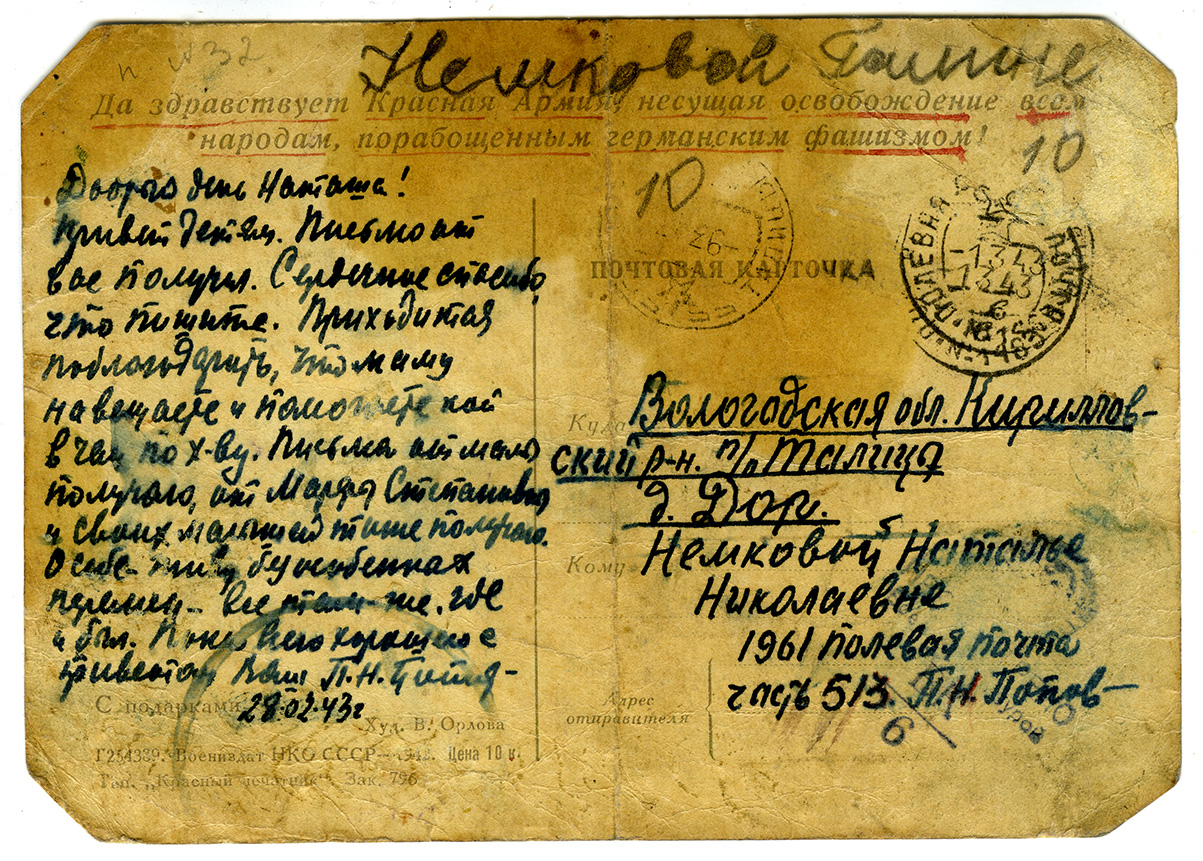 п N 32
Немковой Галине
Да здравствует Красная Армия, несущая освобождение всем
народам, порабощенным германским фашизмом!
10
10
Добрый день Наташа!
Привет детям. Письмо от
вас получил. Сердечное спасибо,
что пишите. Приходится
поблагодарить, что маму
навещаете и помогаете кой
в чем по х-ву. Письма от мамы
получаю, от Марфы Степановны
и своих малышей тоже получаю.
О себе - живу без особенных
перемен - все там-же, где
и был. Пока всего хорошего с
приветом Ваш П.Н.
28-02-43г
ПОЧТОВАЯ КАРТОЧКА
ПОЛЕВАЯ
-1.3.43
-1.3.43
Куда
Вологодская обл. Кириллов-
ский р-н. п/о Талицы
д. Дор.
Кому
Немковой Наталье
Николаевне
1961 полевая почта
часть 513. П.Н. Попов-
Адрес
отправителя
6
С подарками
Худ. В. Орлова
Г254339. Воениздат НКО СССР—1942. Цена 10 к.
Тип. „Красный печатник“. Зак. 796